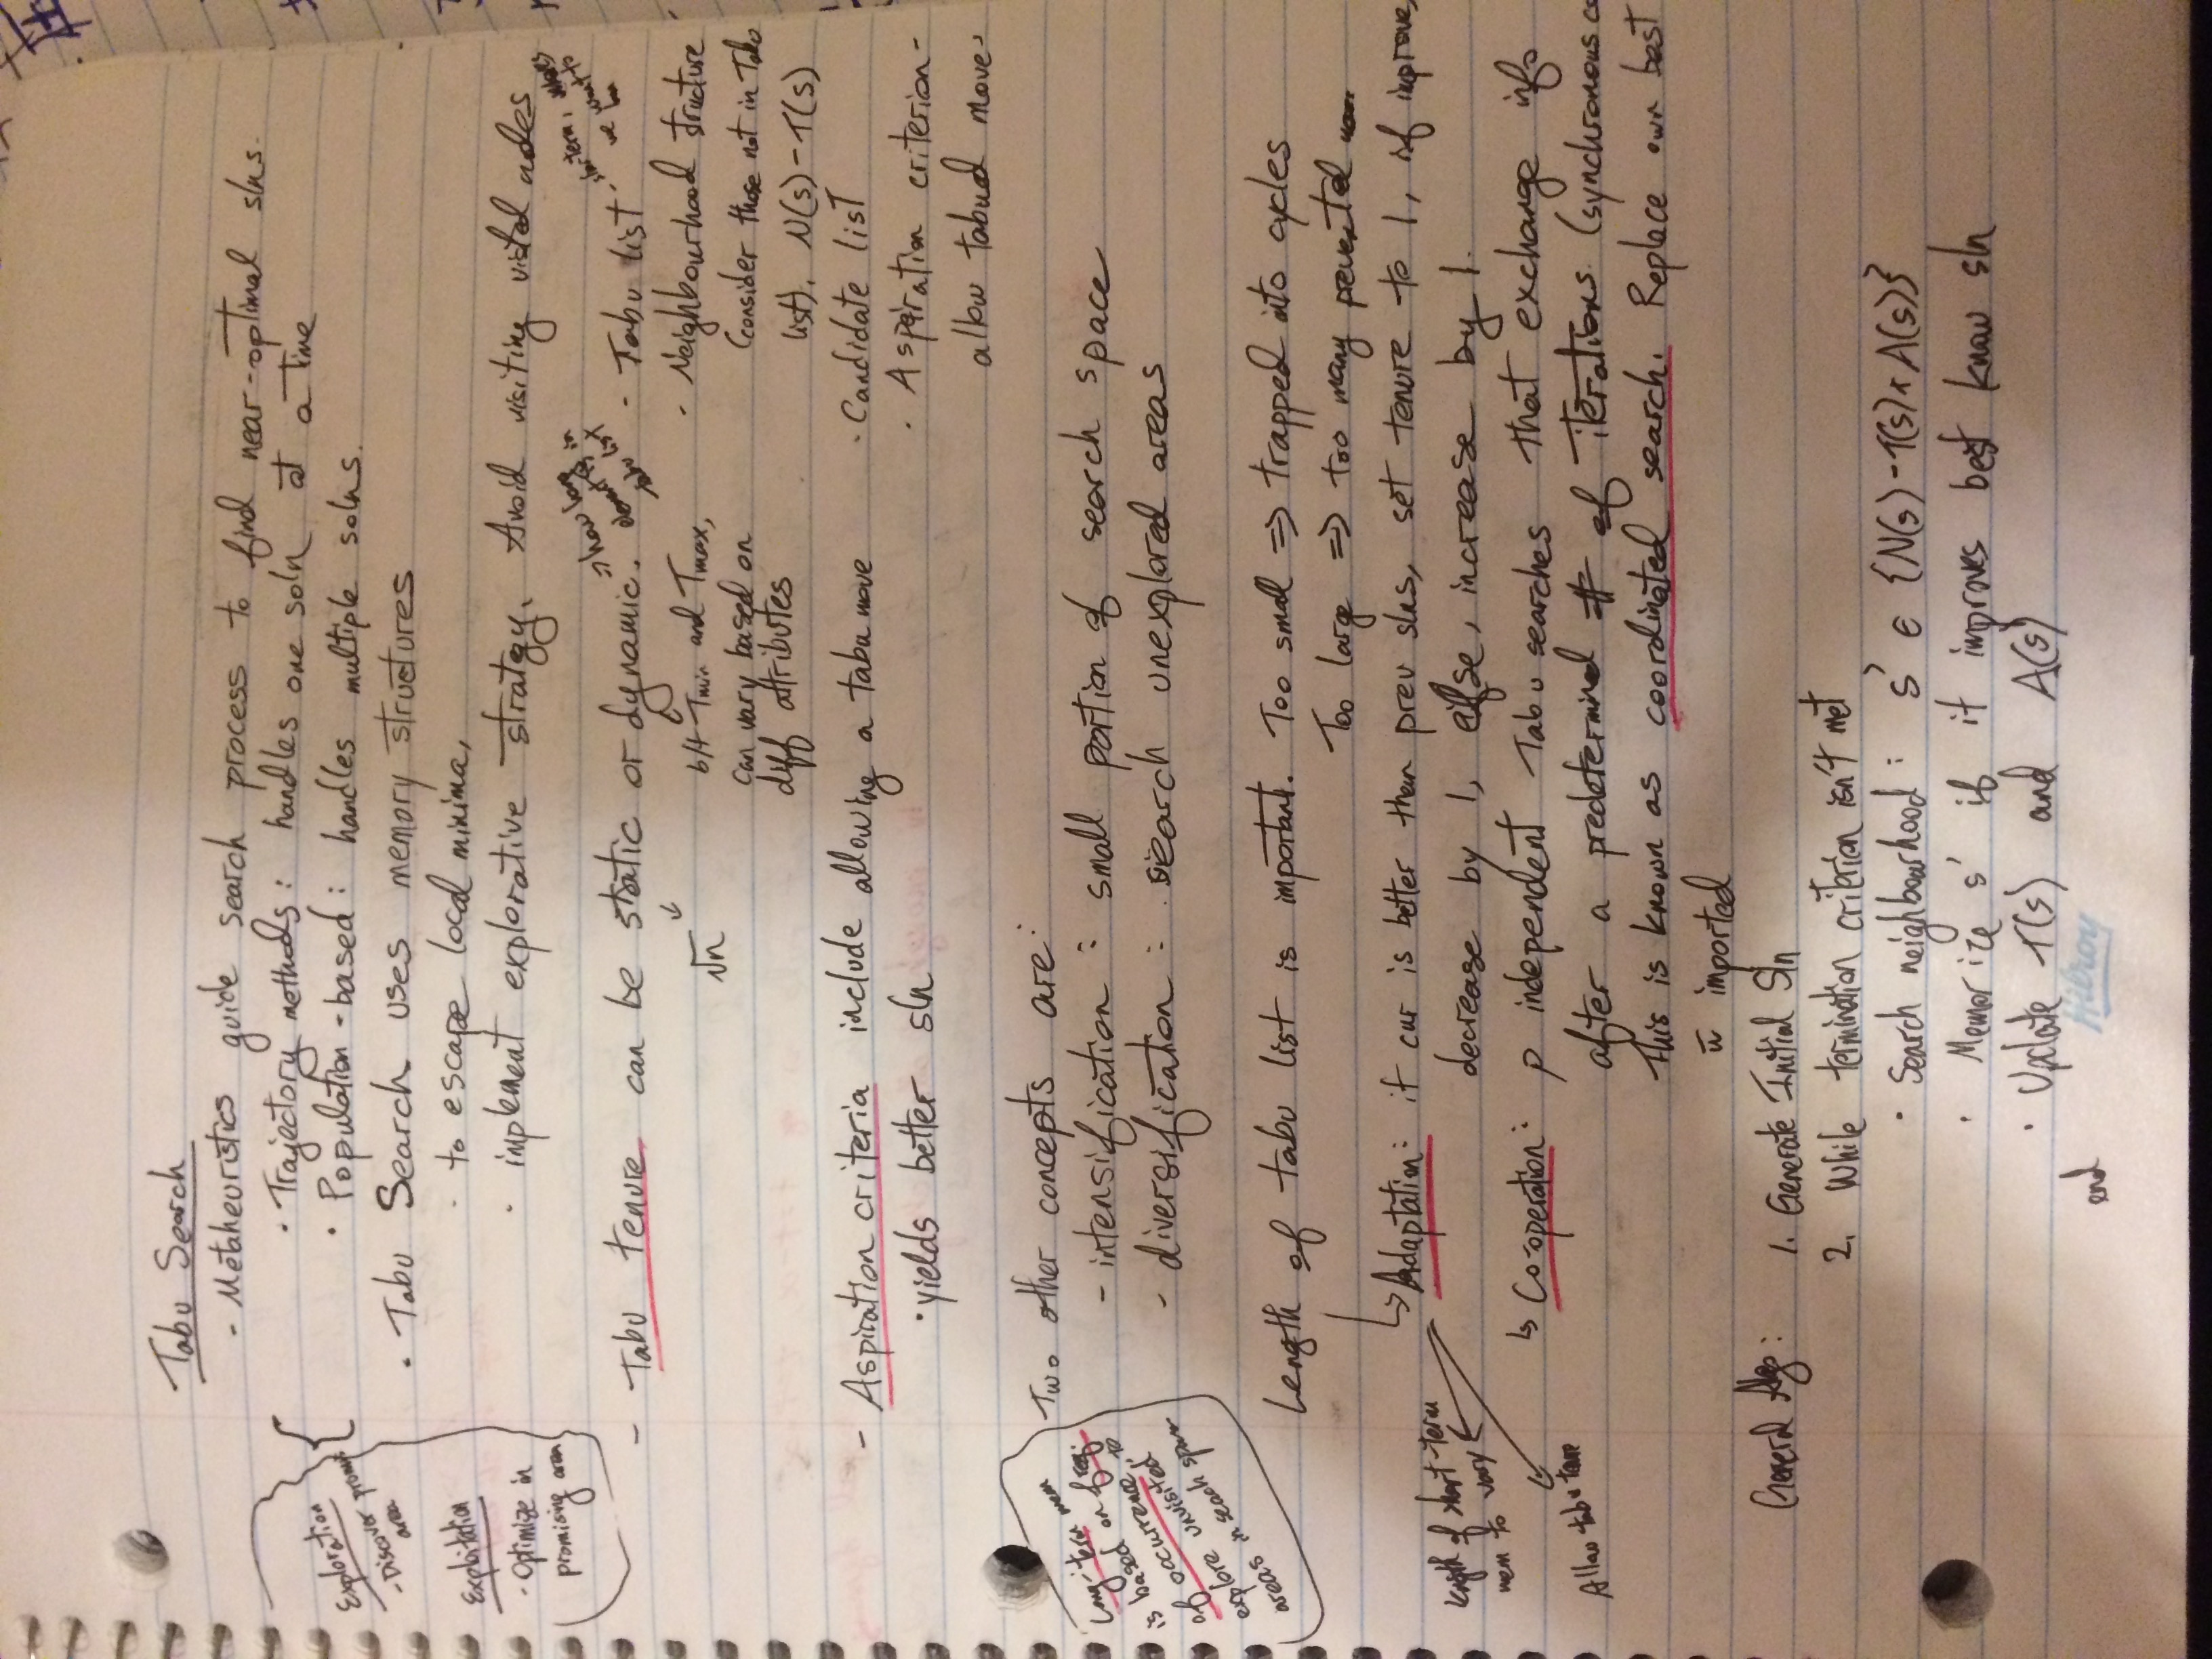 Tabu Search
- Metaheuristics guide search process to find near-optimal slns.
· Trajectory methods: handles one soln at a time
· Population-based: handles multiple solns.
Exploration
- Discover promis
area
Exploitation
- Optimize in
promising area
· Tabu Search uses memory structures
· to escape local minima,
· implement explorative strategy. Avoid visiting visted nodes
- Tabu tenure can be static or dynamic.
=> how long
element is in
tabu list
√n
b/t Tmin and Tmax,
can vary based on
diff attributes
- Tabu list
we want to
- Neighbourhood structure
(consider those not in Tabu
list). N(s)-T(s)
· Candidate list
· Aspiration criterion -
allow tabued move.
- Aspiration criteria include allowing a tabu move
· yields better sln
Two other concepts are:
- intensification: small portion of search space
- diversification: search unexplored areas
Long-term mem
is based on freq.
of occurrence, to
explore unvisited
areas in seach space
Length of tabu list is important. Too small => trapped into cycles
Too large => too many prevented
↳ Adaptation: if cur is better than prev slns, set tenure to 1, if improve,
decrease by 1, else, increase by 1.
length of short-term
mem to vary
Allow tabu
↳ Co-operation: p independent Tabu searches that exchange info
after a predetermined # of iterations (synchronous co
This is known as coordinated search. Replace own best
w̄ imported
General Alg:
1. Generate Initial Sln
2. While termination criterion isn't met
· Search neighbourhood: s' ∈ {N(s)-T(s)+A(s)}
· Memorize s' if it improves best know sln
· Update T(s) and A(s)
end
Hilroy